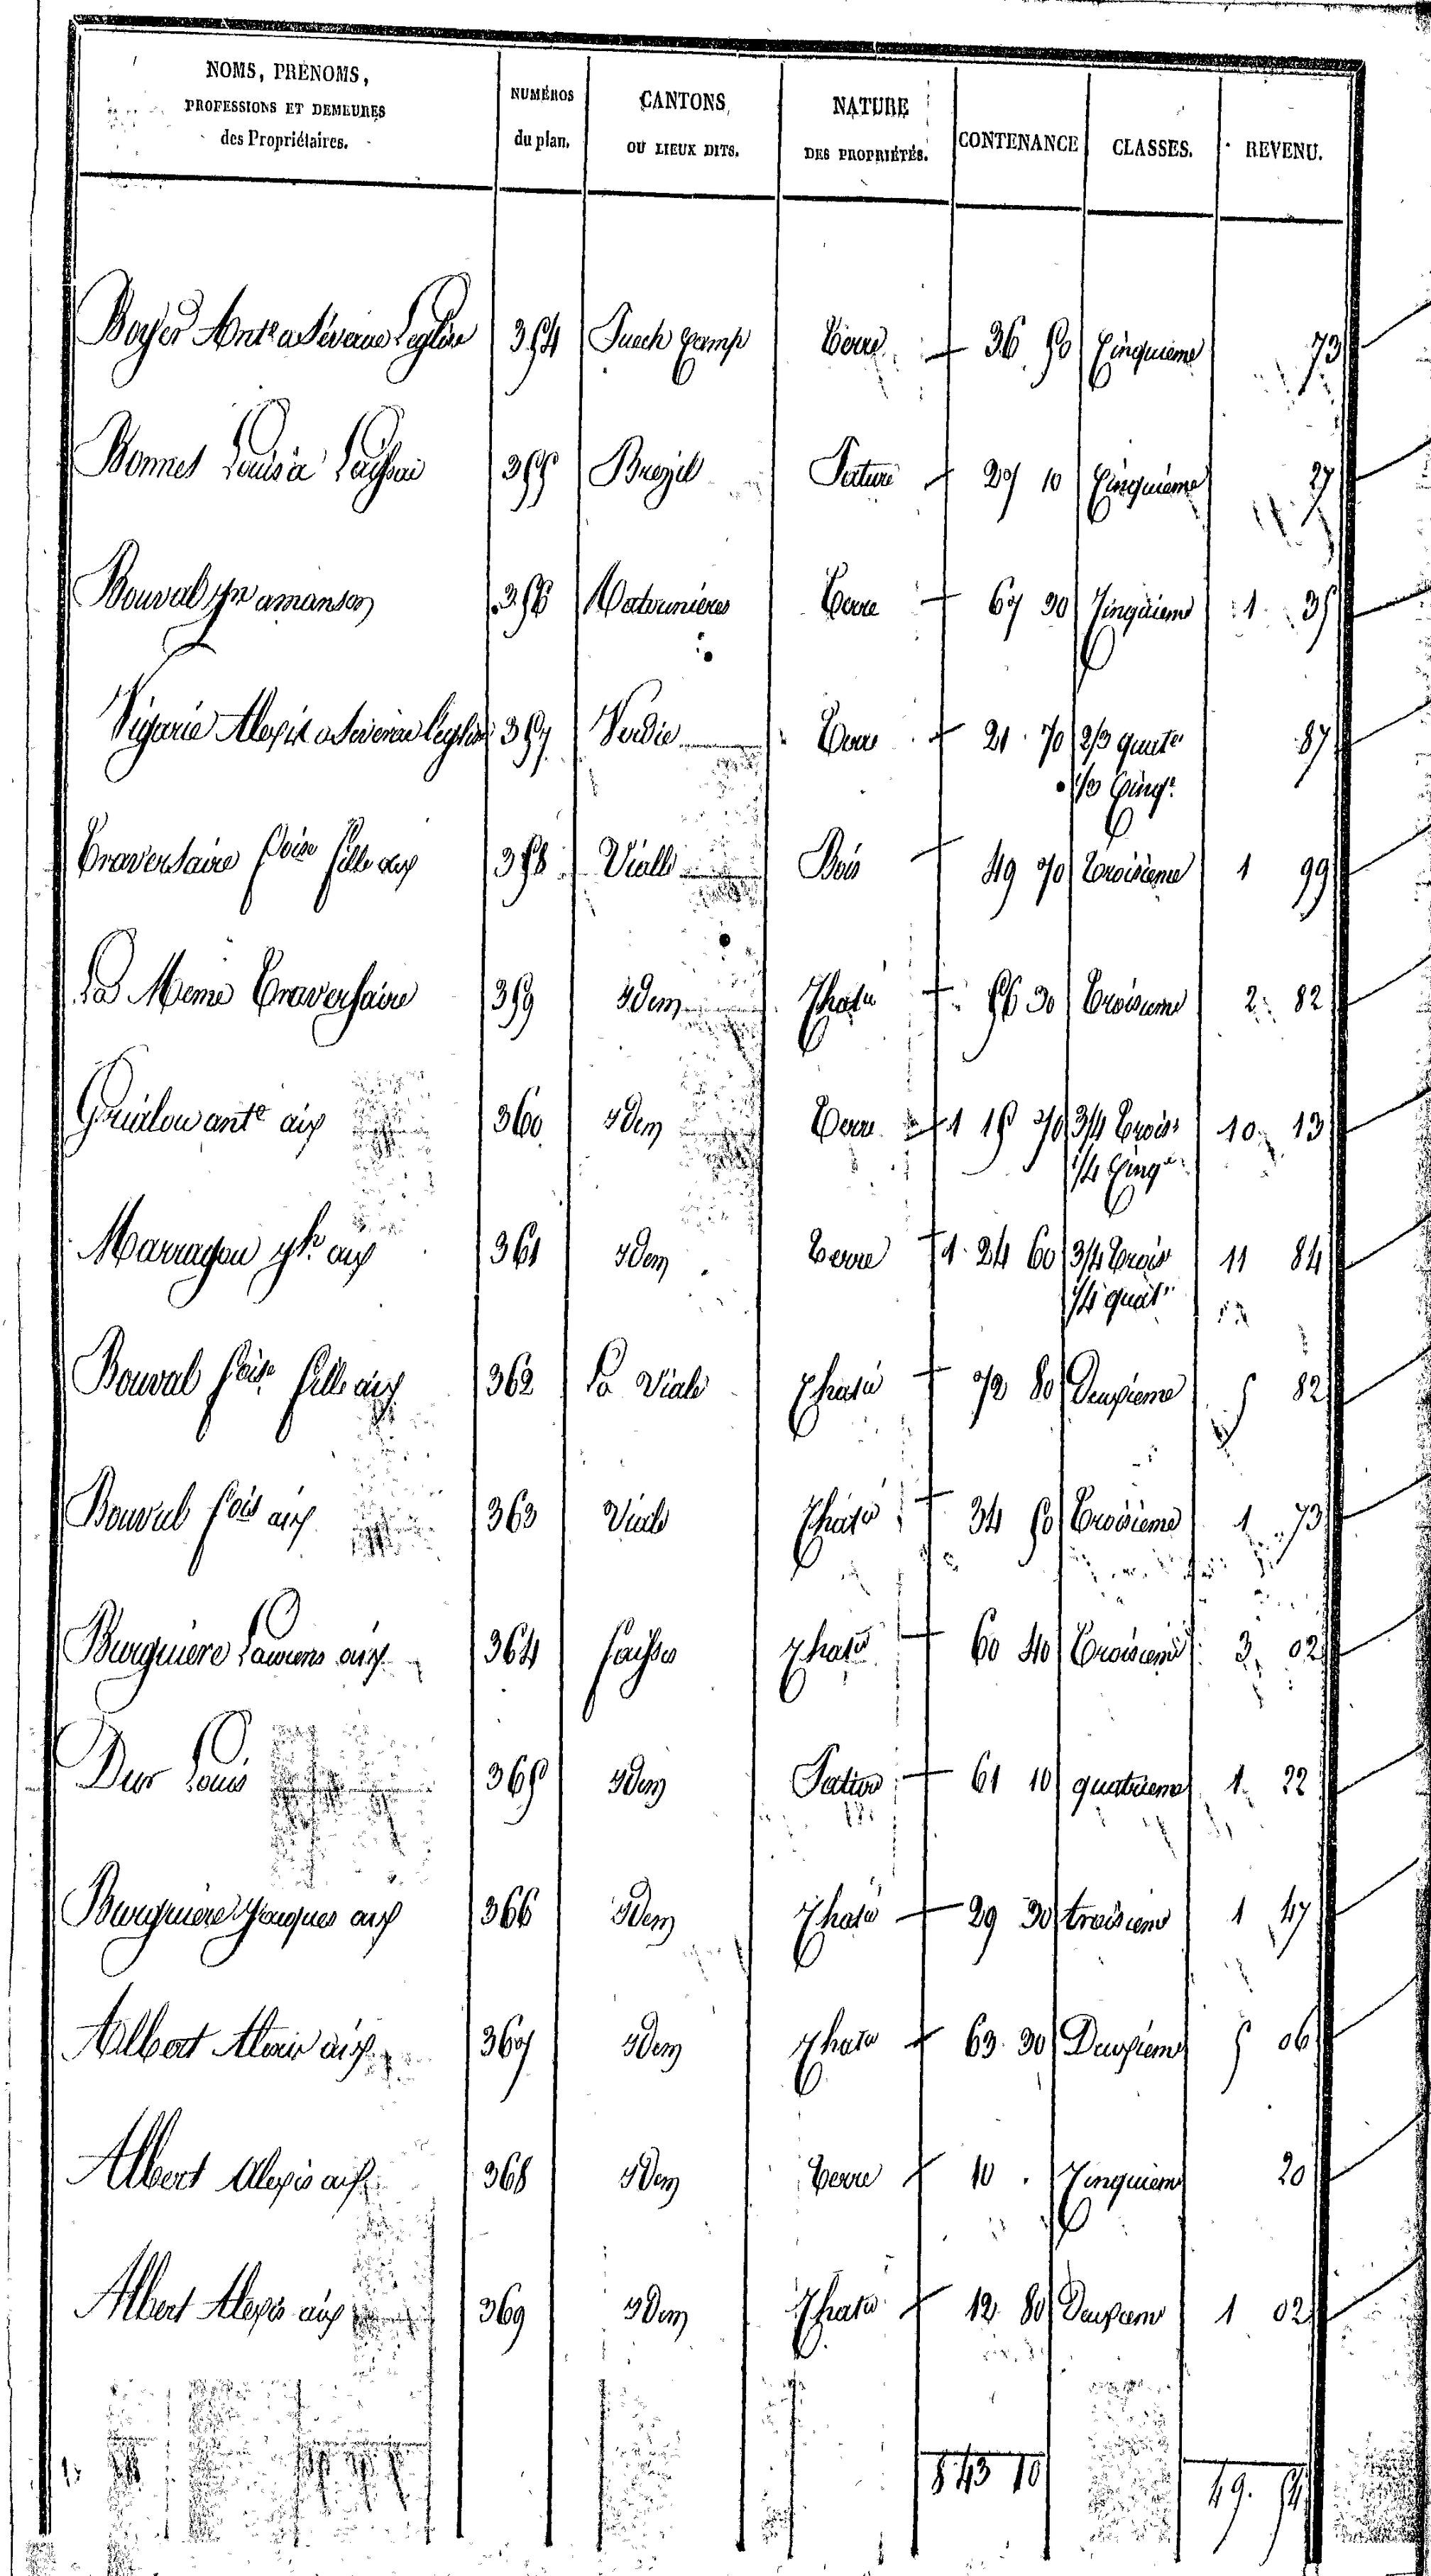 NOMS, PRÉNOMS, PROFESSIONS ET DEMEURES des Propriétaires. NUMÉROS du plan. CANTONS, OU LIEUX DITS. NATURE DES PROPRIÉTÉS. CONTENANCE CLASSES. REVENU.
Boyer Ant.e a Séverac l'eglise 354 Puech Camp Terre 36 50 Cinquieme 73
Bonnet Louis à 355 Brezel Pature 27 10 Cinquième 27
Bouval amanson 356 Terre 67 30 Cinquieme 1 35
Vigarié Alexis a Séverac l'eglise 357 Verdie Terre 21 70 2/3 quate 87
1/3 Cinq.e
Traversaire foise fille aix 358 Vialle Bois 49 70 Troisieme 1 99
La Meme Traversaire 359 idem Chat.é 56 30 Troisieme 2 82
ant.e aix 360 idem Terre 1 15 70 3/4 Trois 10 13
1/4 Cinq
Marragou aix 361 idem Terre 1 24 60 3/4 Trois 11 84
1/4 quat
Bouval foise fille aix 362 La Viale Chaté 72 80 Deuxieme 5 82
Bouval fois aix 363 Viale Chaté 34 50 Troisieme 1 73
Burguiere Laurens aix 364 faisses Chaté 60 40 Troisieme 3 02
Dur Louis 365 idem Pature 61 10 quatrieme 1 22
Burguiere Jacques aix 366 idem Chaté 29 30 troisieme 1 47
Albert Alexis aix 367 idem Chaté 63 30 Deuxieme 5 06
Albert Alexis aix 368 idem Terre 10 . Cinquieme 20
Albert Alexis aix 369 idem Chaté 12 80 Deuxieme 1 02
8 43 10 49. 54